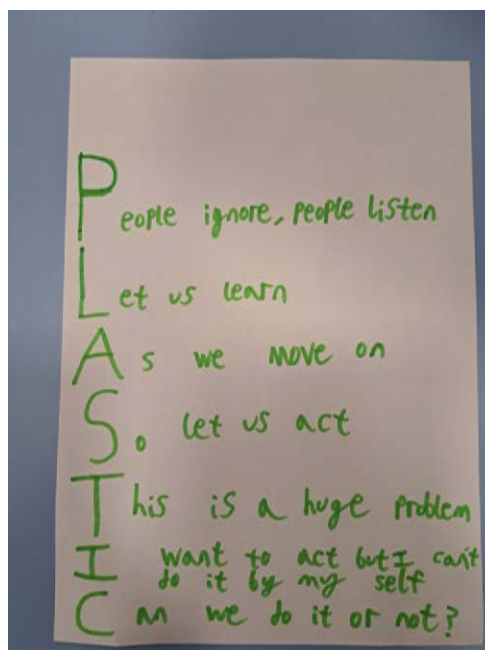 People ignore, people listen
Let us learn
As we move on
So let us act
This is a huge problem
I want to act but I can't
do it by my self
Can we do it or not?